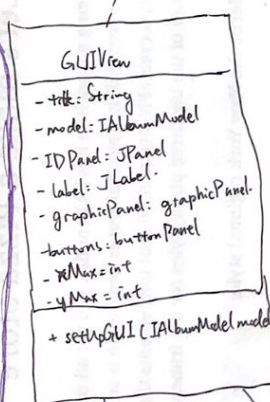 GUIView
- title: String
- model: IAlbumModel
- IDPanel: JPanel
- label: JLabel.
- graphicPanel: graphicPanel.
- buttons: buttonPanel
- xMax = int
- yMax = int
+ setUpGUI (IAlbumModel model